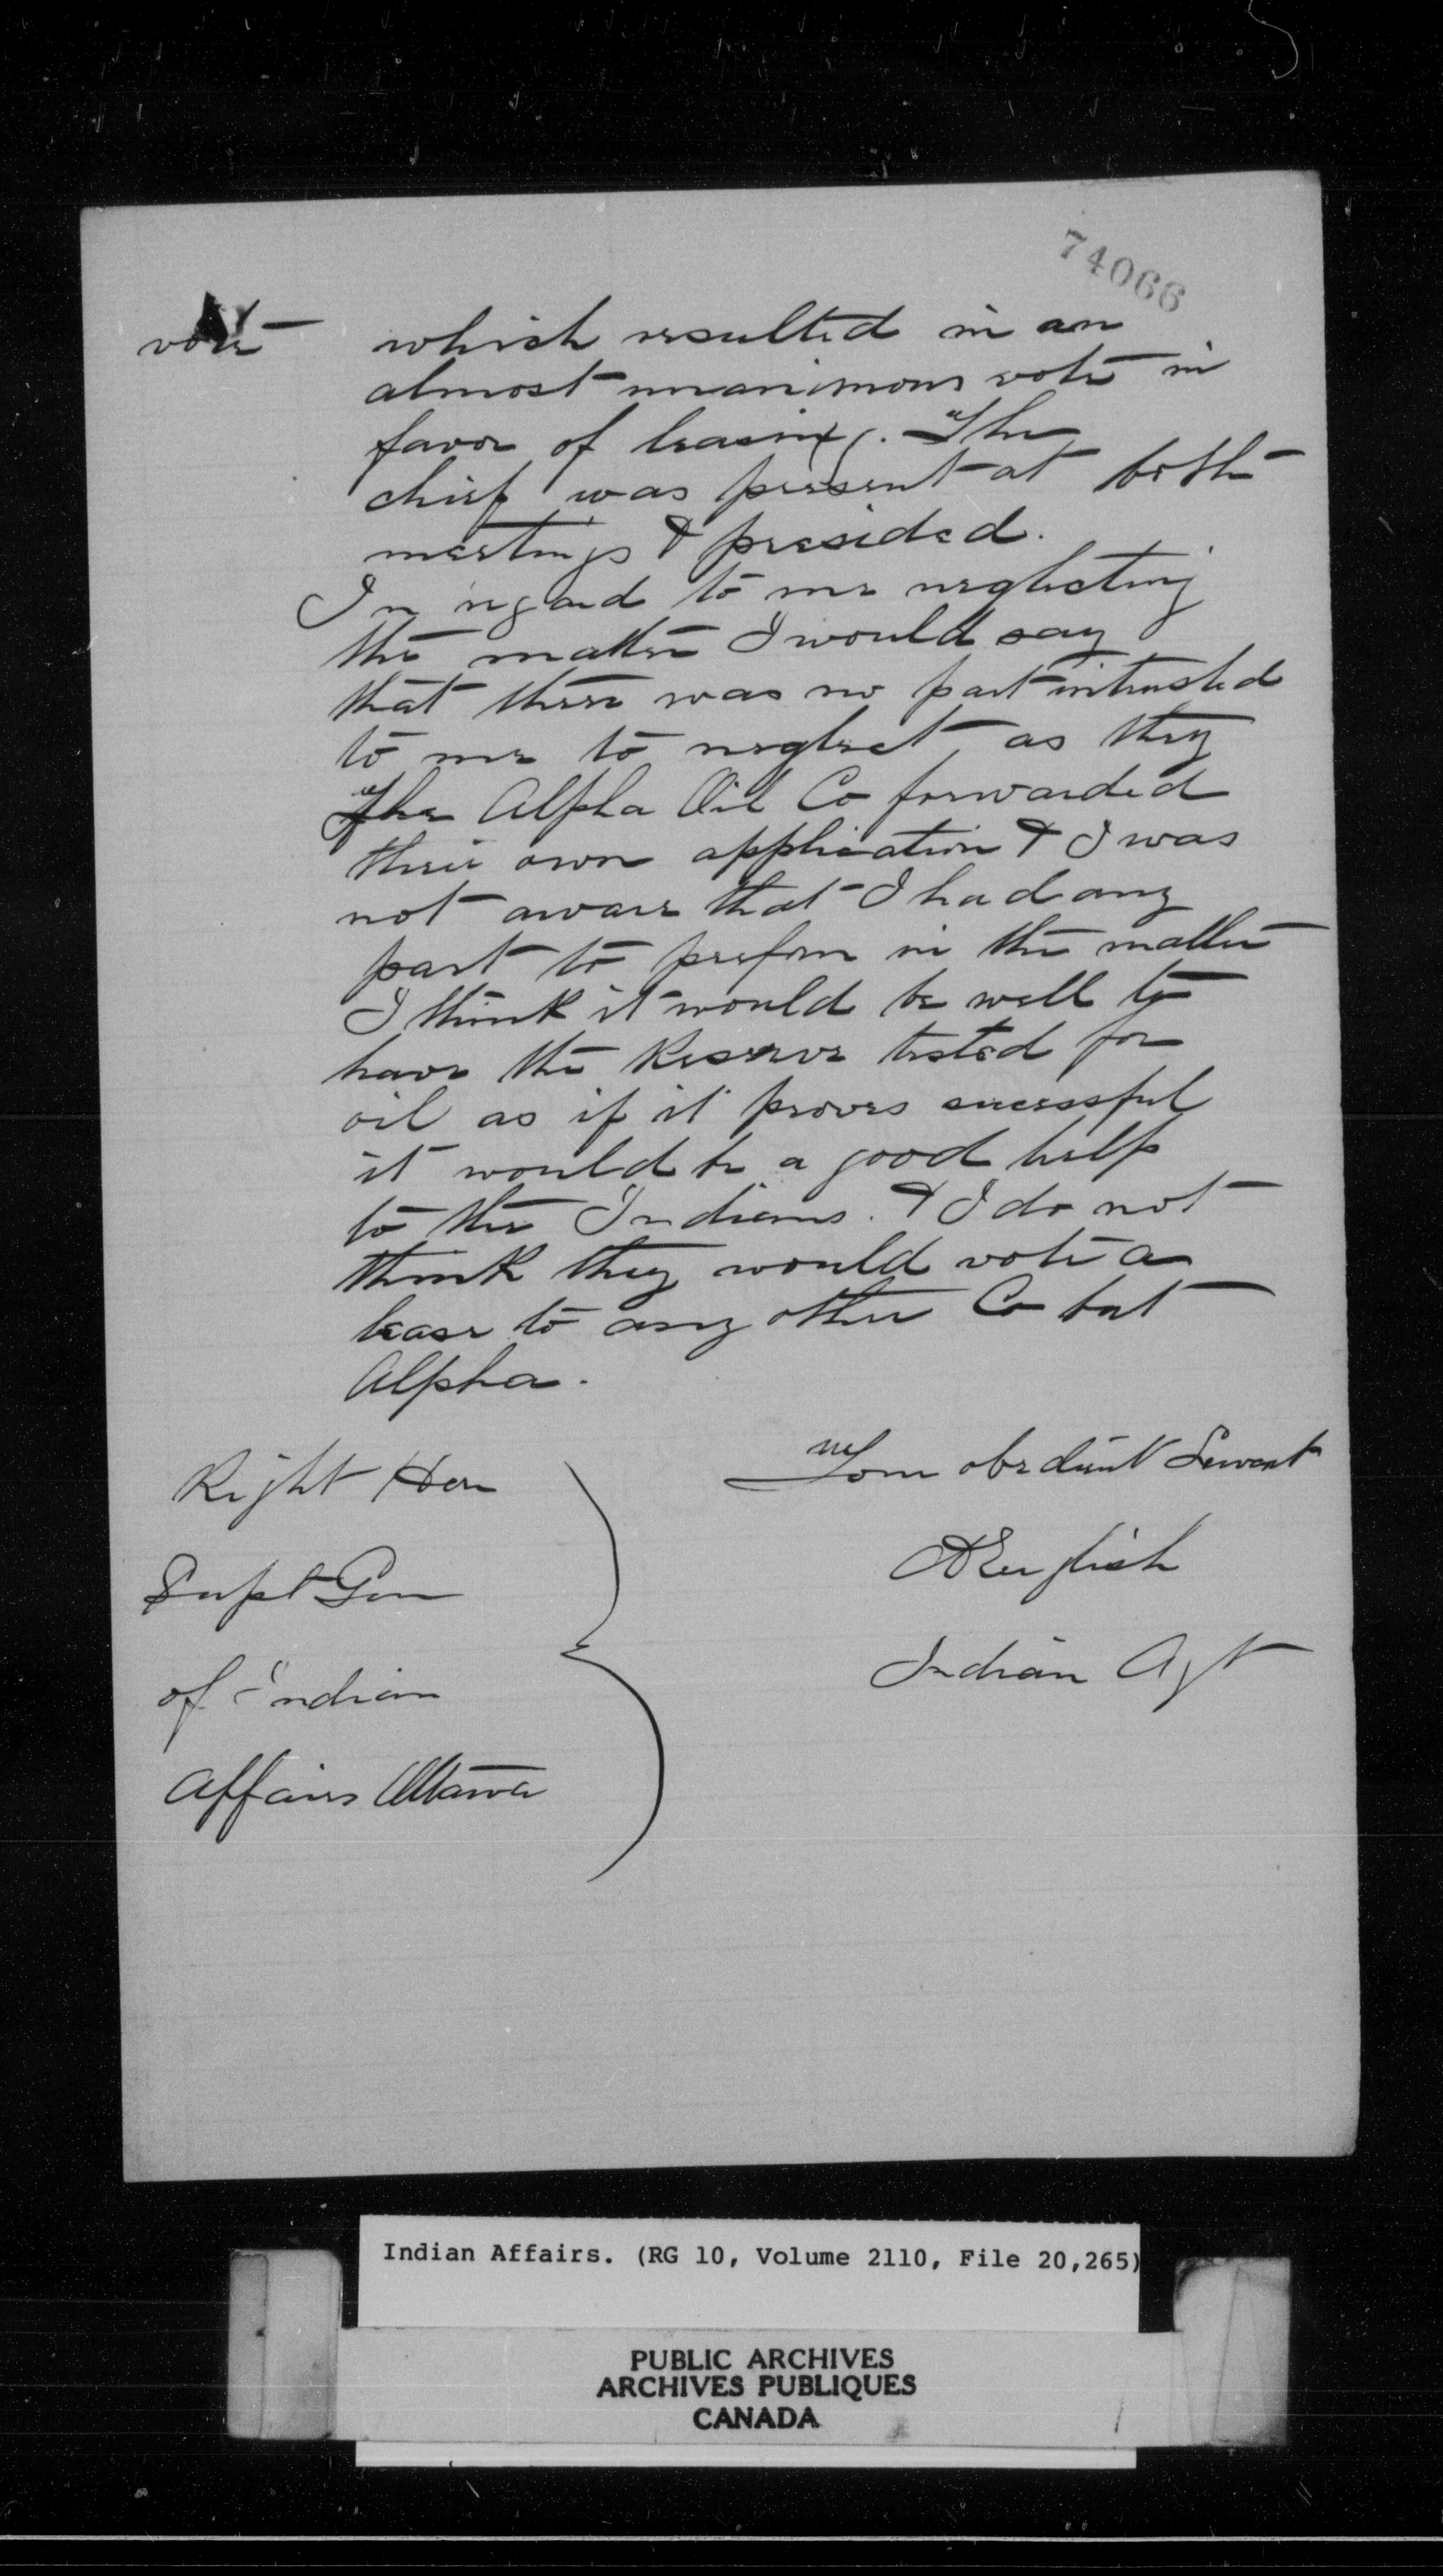 74066
vote which resulted in an
almost unanimous vote in
favor of leasing. The
chief was present at both
meetings & presided.
In regard to me neglecting
the matter I would say
that there was no part intrusted
to me to neglect, as they
The Alpha Oil Co forwarded
their own application & I was
not aware that I had any
part to preform in the matter
I think it would be well to
have the Reserve tested for
oil as if it proves sucessful
it would be a good help
to the Indians. & I do not
think they would vote a
lease to any other Co but
Alpha.
Your obedient Servant
A English
Indian Agt
Right Hon
Supt Gen
of Indian
Affairs Ottawa
Indian Affairs. (RG 10, Volume 2110, File 20,265)
PUBLIC ARCHIVES
ARCHIVES PUBLIQUES
CANADA